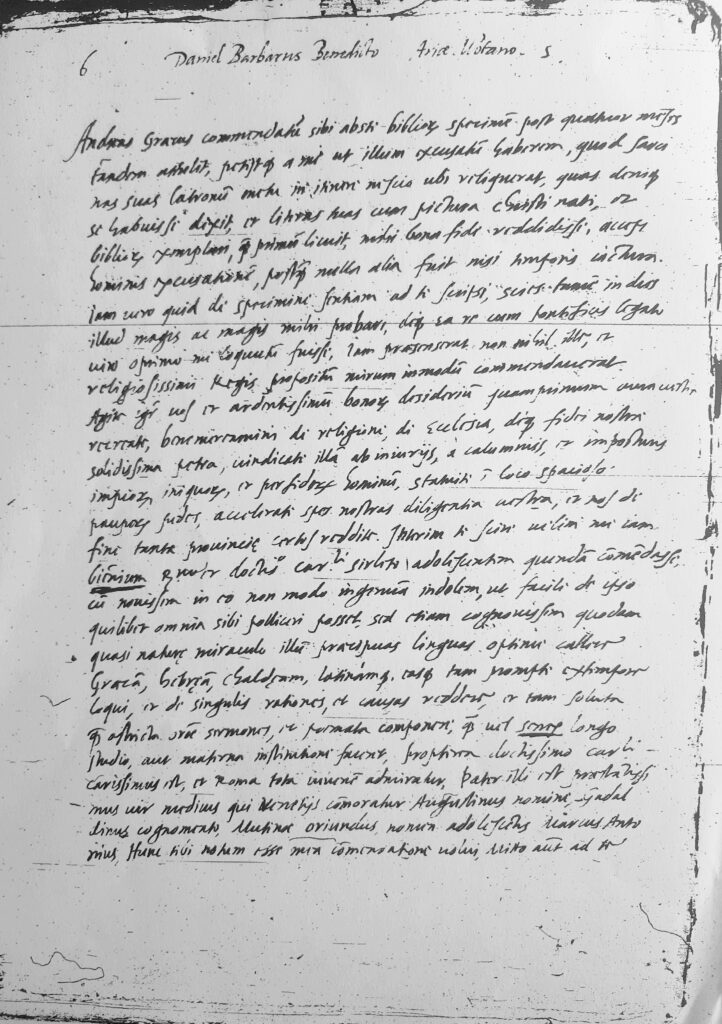 6 Daniel Barbarus Benedicto Ariæ Mōtano. S
Andreas Græcus commendatū sibi abs te biblioȝ specimē post quatuor menses
tandem attulit, petijtq̄ a me ut illum excusatū haberem, quod sarci
nas suas latronū metu in itinere nescio ubi reliquerat, quas deniq̄
se habuisse dixit, et literas tuas cum pictura Christi nati, et
biblioȝ exemplari, q̄ primū licuit, mihi bona fide reddidisse, accepi
hominis excusationē, postq̄ nulla alia fuit nisi temporis iactura.
Iam vero quid de specimine sentiam ad te scripsi, scies tamē in dies
illud magis ac magis mihi probari, deq̄ ea re cum pontificis legato
viro optimo me loquutū fuisse, Iam præsenserat non nihil ille, et
religiosissimi Regis propositū mirum in modū commendaverat
Agite igr̄ vos et ardentissimū bonoȝ desideriū quamprimum
recreate, benemeremini de religione, de Ecclesia, deq̄ fidei nostræ
solidissima petra, vindicate illā ab iniurijs, a calumnijs, et imposturis
impioȝ, iniquoȝ, et perfidoȝ hominū, statuite ī loco spacioso
pauperȝ pedes, accelerate spes nostras diligentia vestra, et nos de
fine tantæ provincię certos reddite. Interim te scire velim me iam
bienium R. et doctiss.º car.li sirleto adolescentem quendā comēdasse,
cū novissem in eo non modo ingenuā indolem, ut facile de ipso
quilibet omnia sibi polliceri posset, sed etiam cognovissem quodam
quasi naturę miraculo illū præcipuas linguas optime callere
Græcā, hebręā, chaldęam, latināmq. easq̄ tam prompte extempore
loqui, et de singulis rationes, et causas reddere, et tam soluta
q̄ astricta orāe sermones, et poemata componere, q̄ vel senes longo
studio, aut materna institutione facerent, propterea doctissimo car.li
carissimus est, et Roma tota iuvenē admiratur, Pater illi est præstātissi
mus vir medicus qui Venetijs cōmoratur Augustinus nomine, Gadal
dinus cognomento, Mutinæ oriundus, nomen adolescētis Marcus Anto
nius, Hunc tibi notum esse mea cōmendatione volui, Mitto aūt ad te